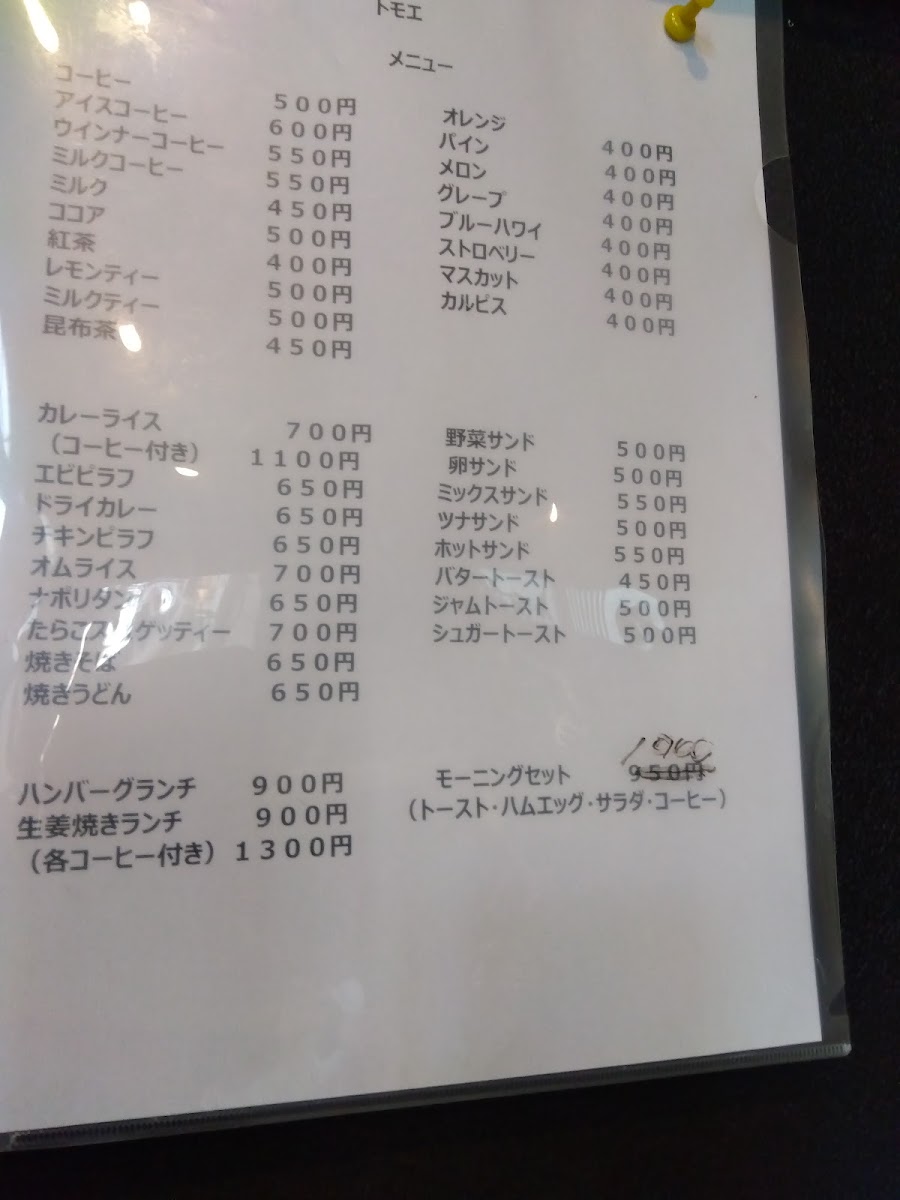 トモエ
メニュー
コーヒー ５００円
アイスコーヒー ６００円
ウインナーコーヒー ５５０円
ミルクコーヒー ５５０円
ミルク ４５０円
ココア ５００円
紅茶 ４００円
レモンティー ５００円
ミルクティー ５００円
昆布茶 ４５０円
オレンジ ４００円
パイン ４００円
メロン ４００円
グレープ ４００円
ブルーハワイ ４００円
ストロベリー ４００円
マスカット ４００円
カルピス ４００円
カレーライス ７００円
（コーヒー付き） １１００円
エビピラフ ６５０円
ドライカレー ６５０円
チキンピラフ ６５０円
オムライス ７００円
ナポリタン ６５０円
たらこスパゲッティー ７００円
焼きそば ６５０円
焼きうどん ６５０円
野菜サンド ５００円
卵サンド ５００円
ミックスサンド ５５０円
ツナサンド ５００円
ホットサンド ５５０円
バタートースト ４５０円
ジャムトースト ５００円
シュガートースト ５００円
ハンバーグランチ ９００円
生姜焼きランチ ９００円
（各コーヒー付き） １３００円
1000
モーニングセット ９５０円
（トースト・ハムエッグ・サラダ・コーヒー）